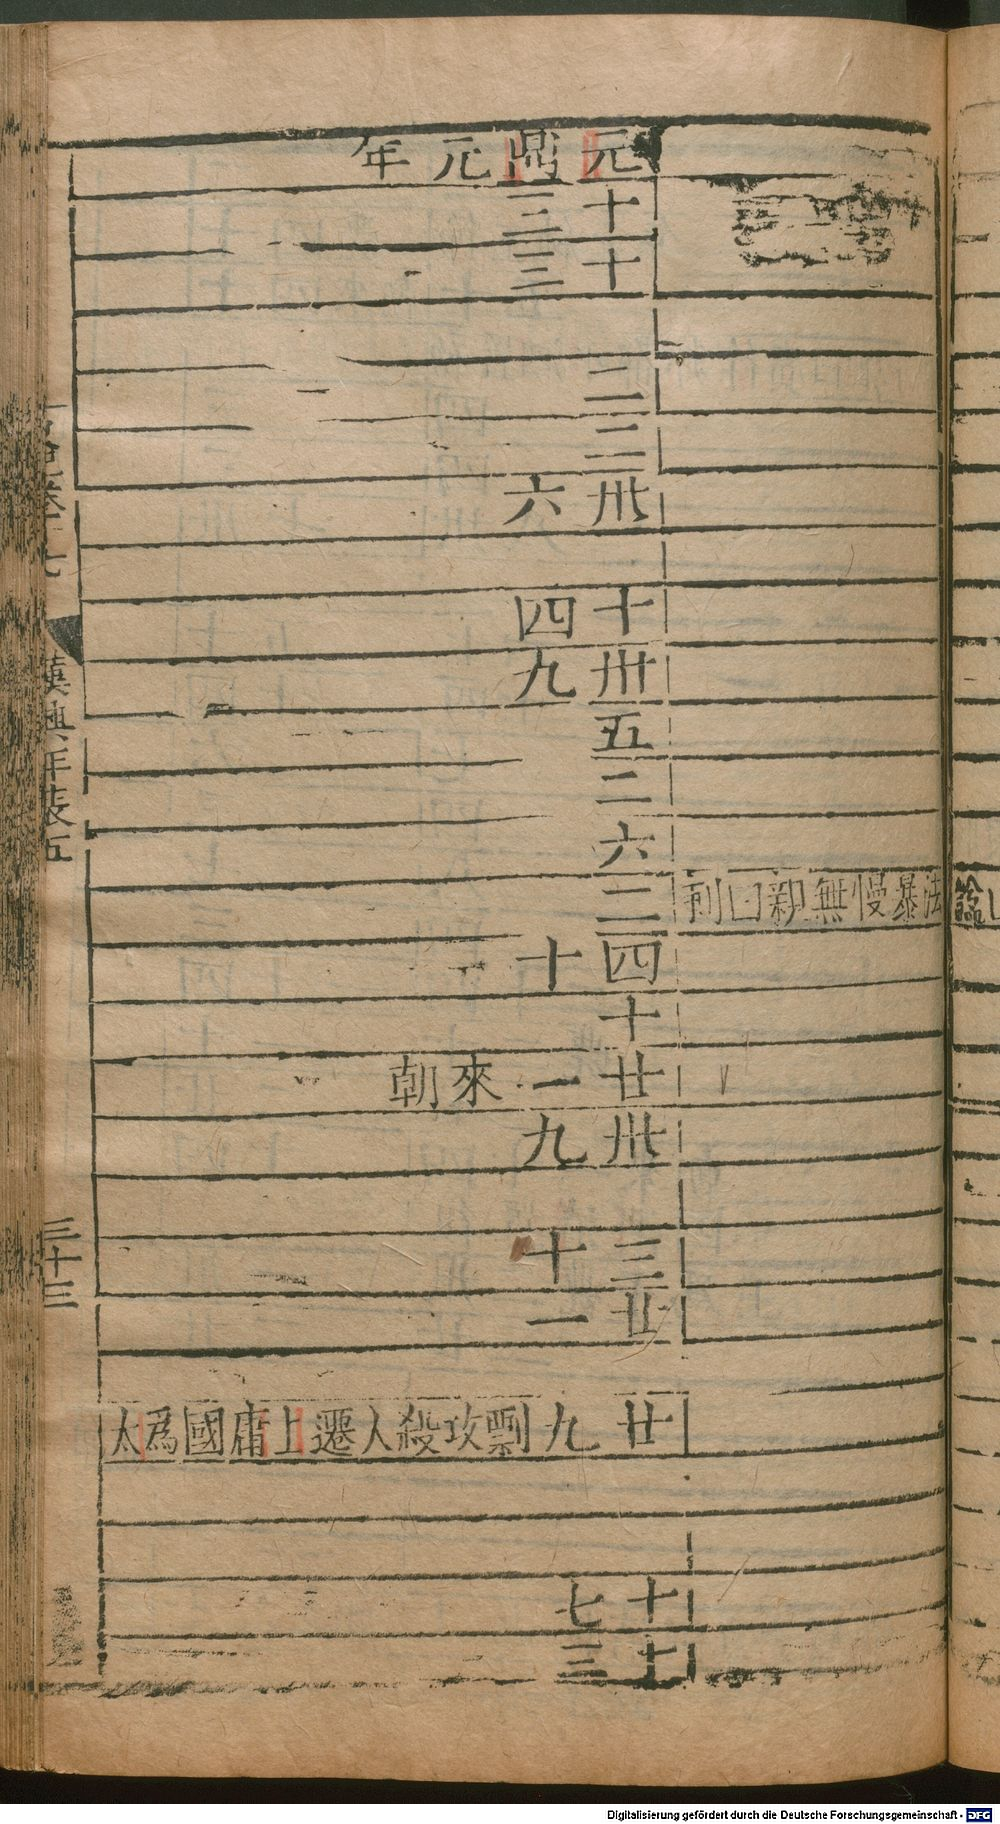 元鼎元年
十三
十三
二
二
卅六
十四
卅九
五
二
六
二
法暴慢無親曰剌
四十
十
廿一 來朝
卅九
三十
廿一
廿九 剽攻殺人遷上庸國爲太
十七
十三
漢興年表五
三十三
Digitalisierung gefördert durch die Deutsche Forschungsgemeinschaft - DFG